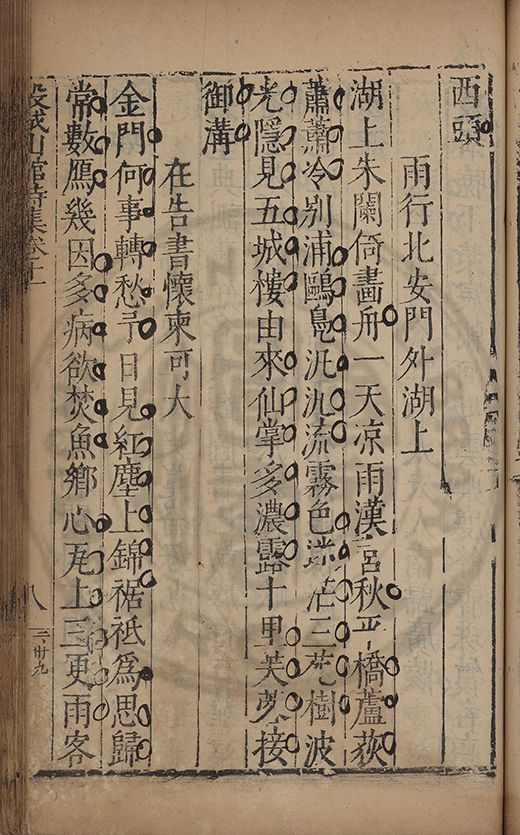 西頭
雨行北安門外湖上
湖上朱闌倚畫舟一天凉雨漢宮秋平橋蘆荻
蕭蕭冷别浦鷗鳧汎汎流霧色迷茫三苑樹波
光隱見五城樓由來仙掌多濃露十里芙蓉接
御溝
在告書懷柬可大
金門何事轉愁予日見紅塵上錦裾祗為思歸
常數鴈幾因多病欲焚魚鄉心瓦上三更雨客
穀城山館詩集卷十
八